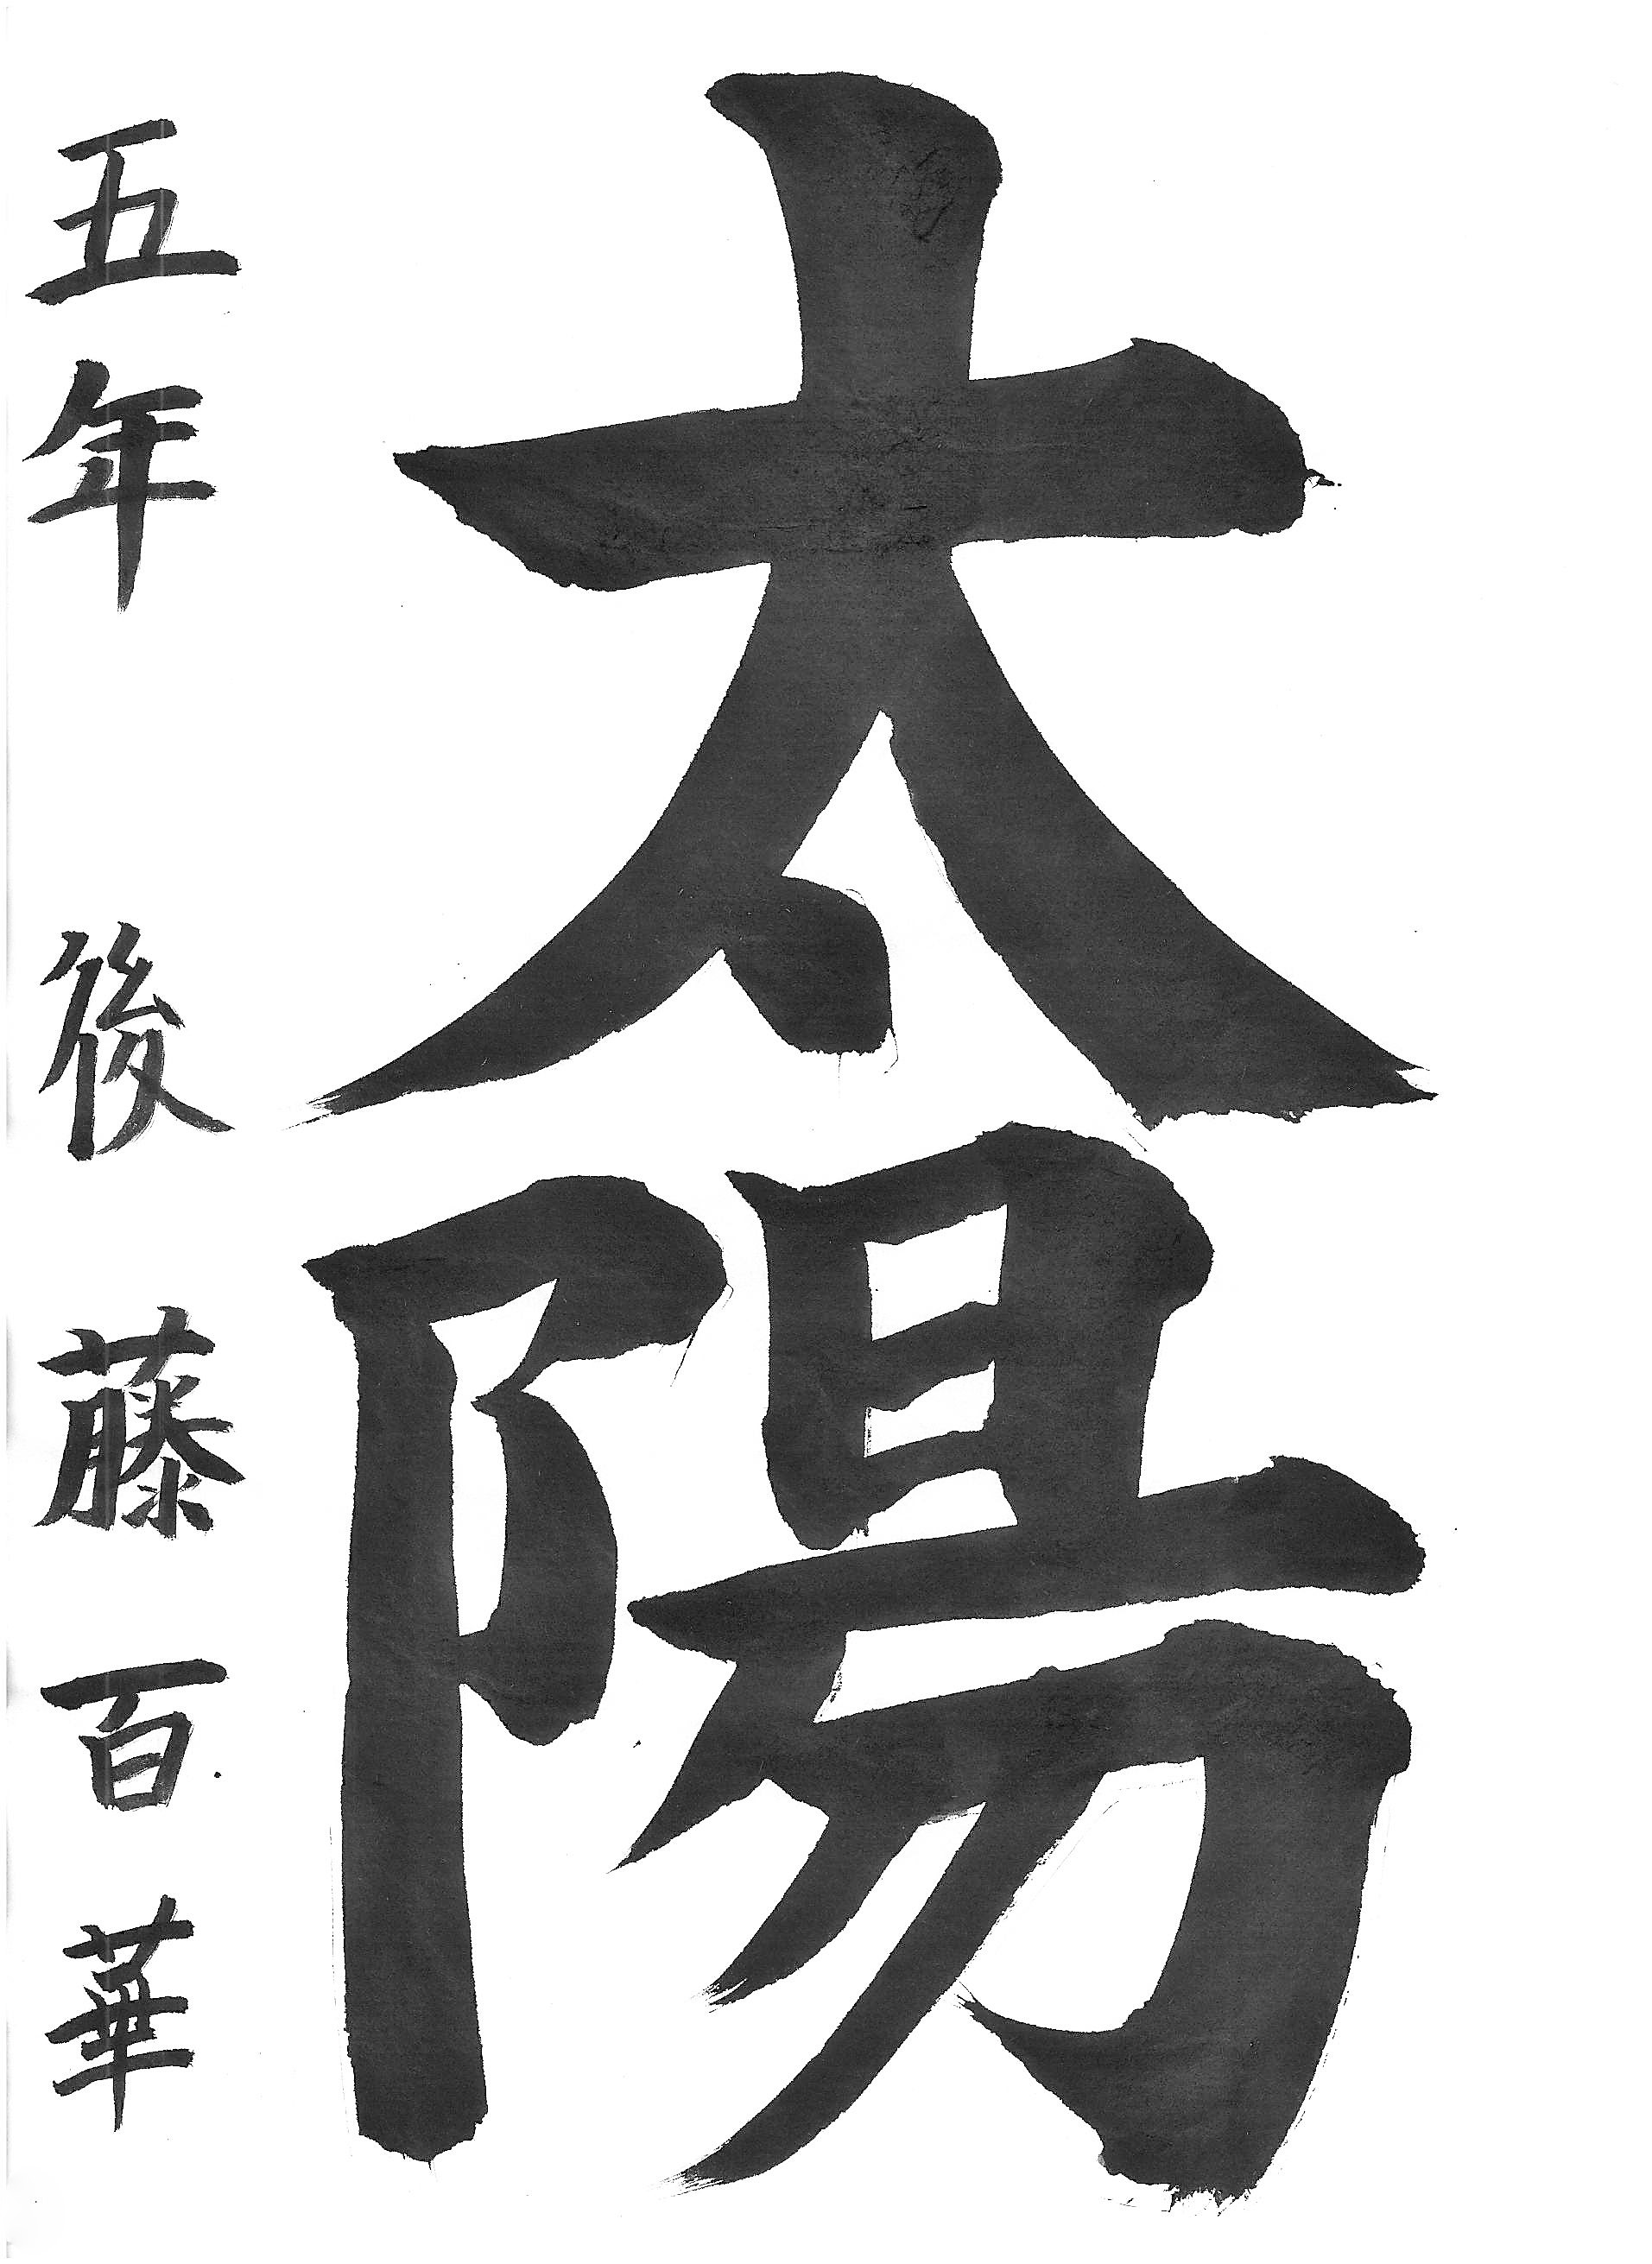 太陽
五年 後藤百華